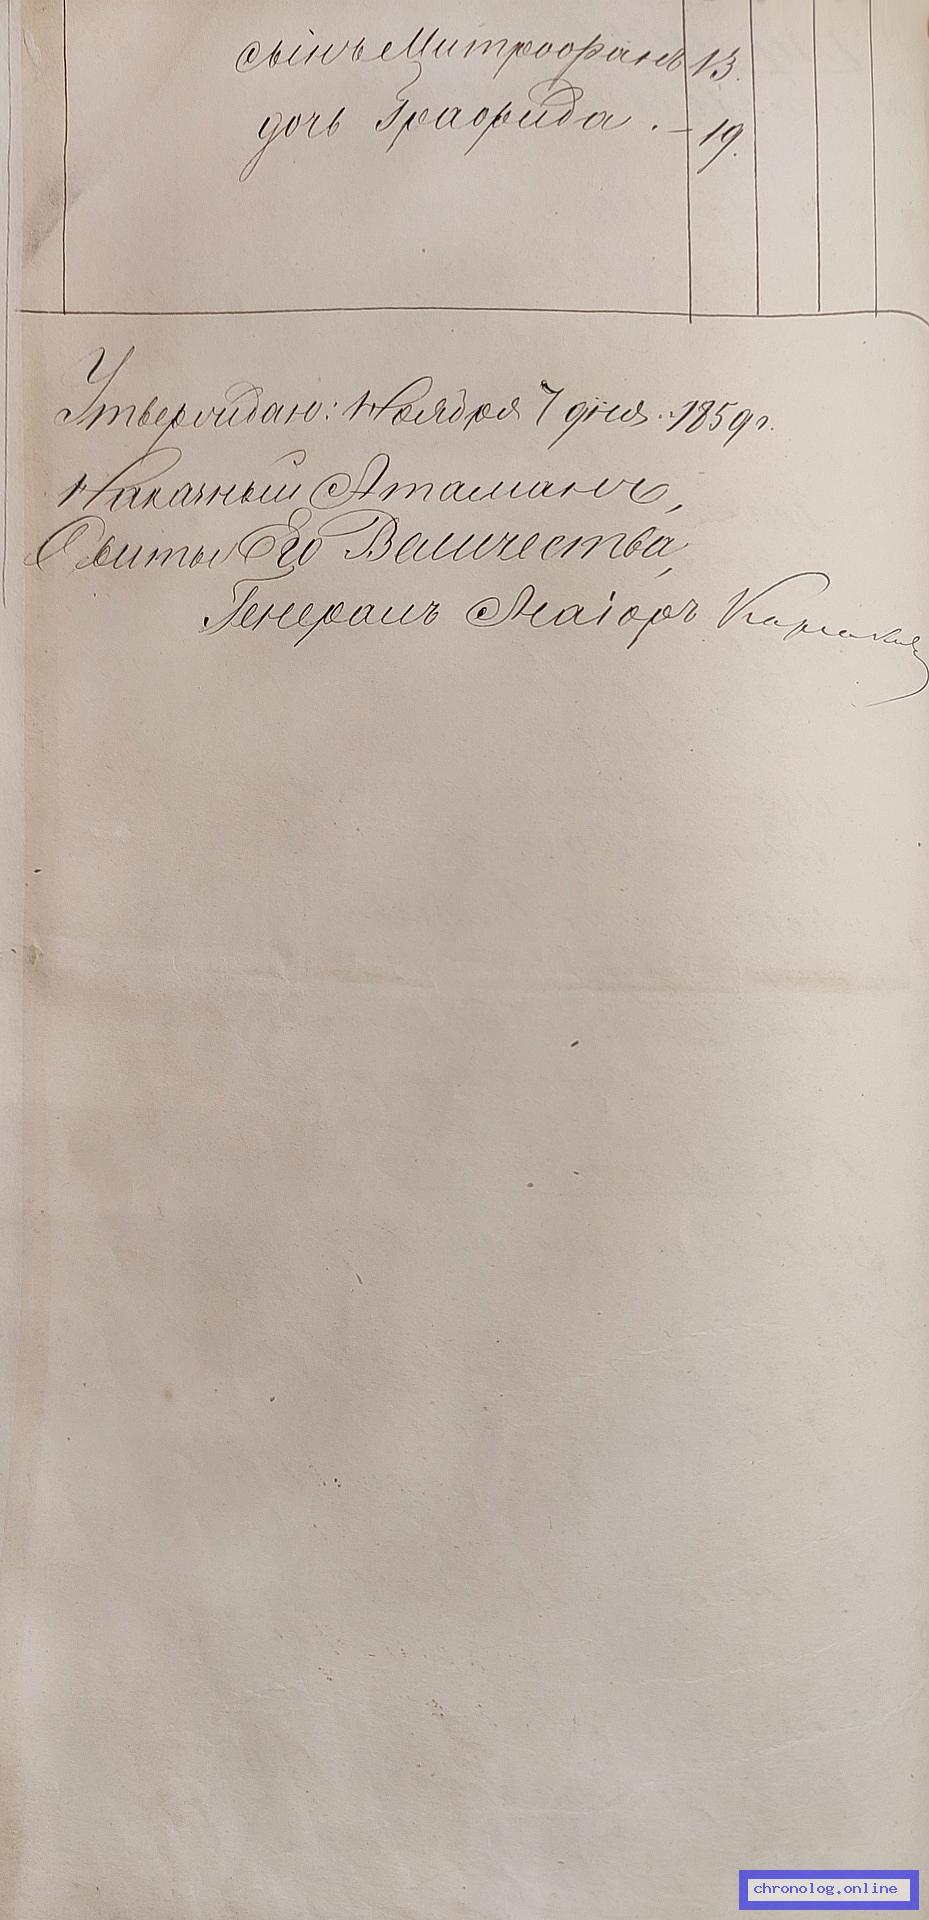 сынъ Митрофанъ 13.
дочь Графида. - 19.
Утверждаю: Ноября 7 дня 1859 г.
Наказный Атаманъ,
Свиты Его Величества,
Генералъ Маіоръ
chronolog.online